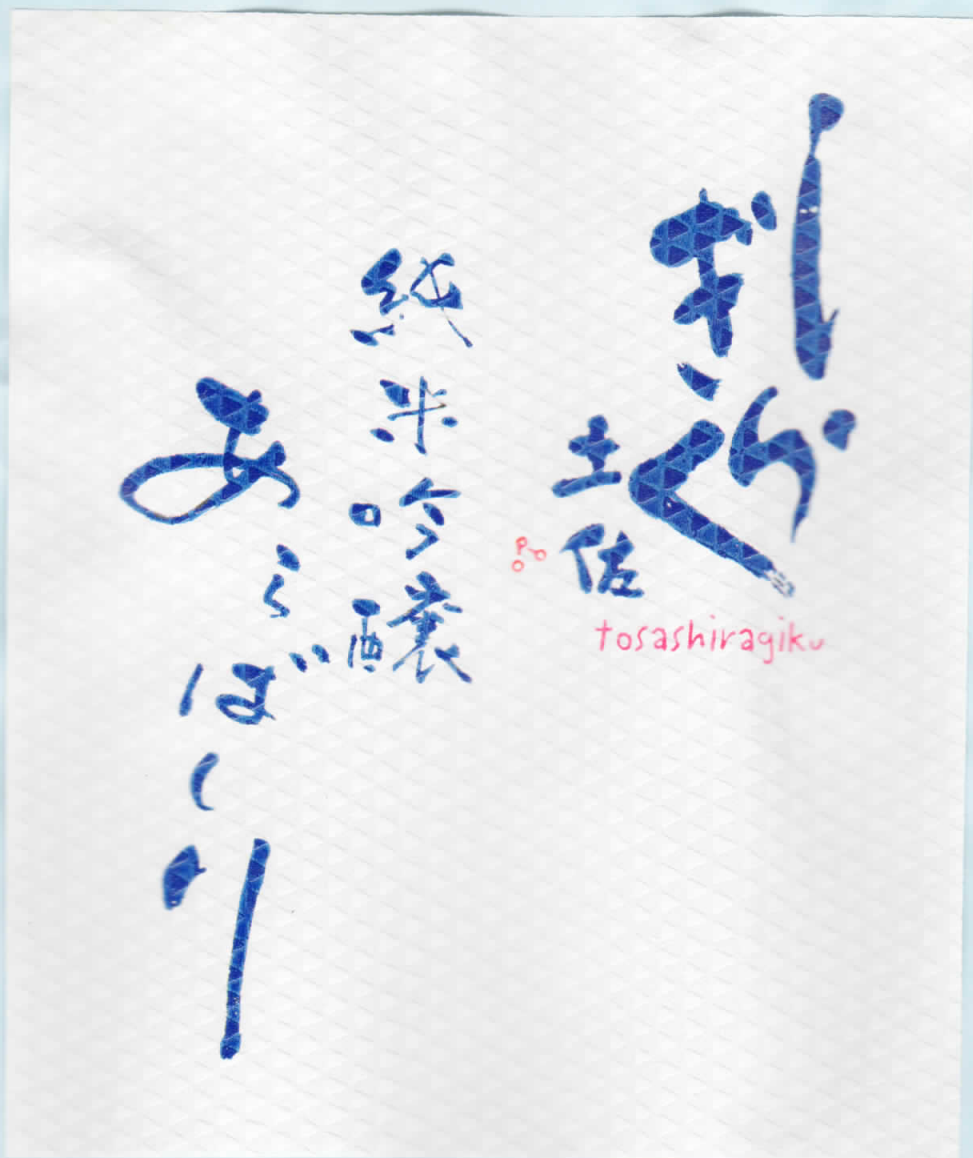 しらぎく
土佐
tosashiragiku
純米吟醸
あらばしり